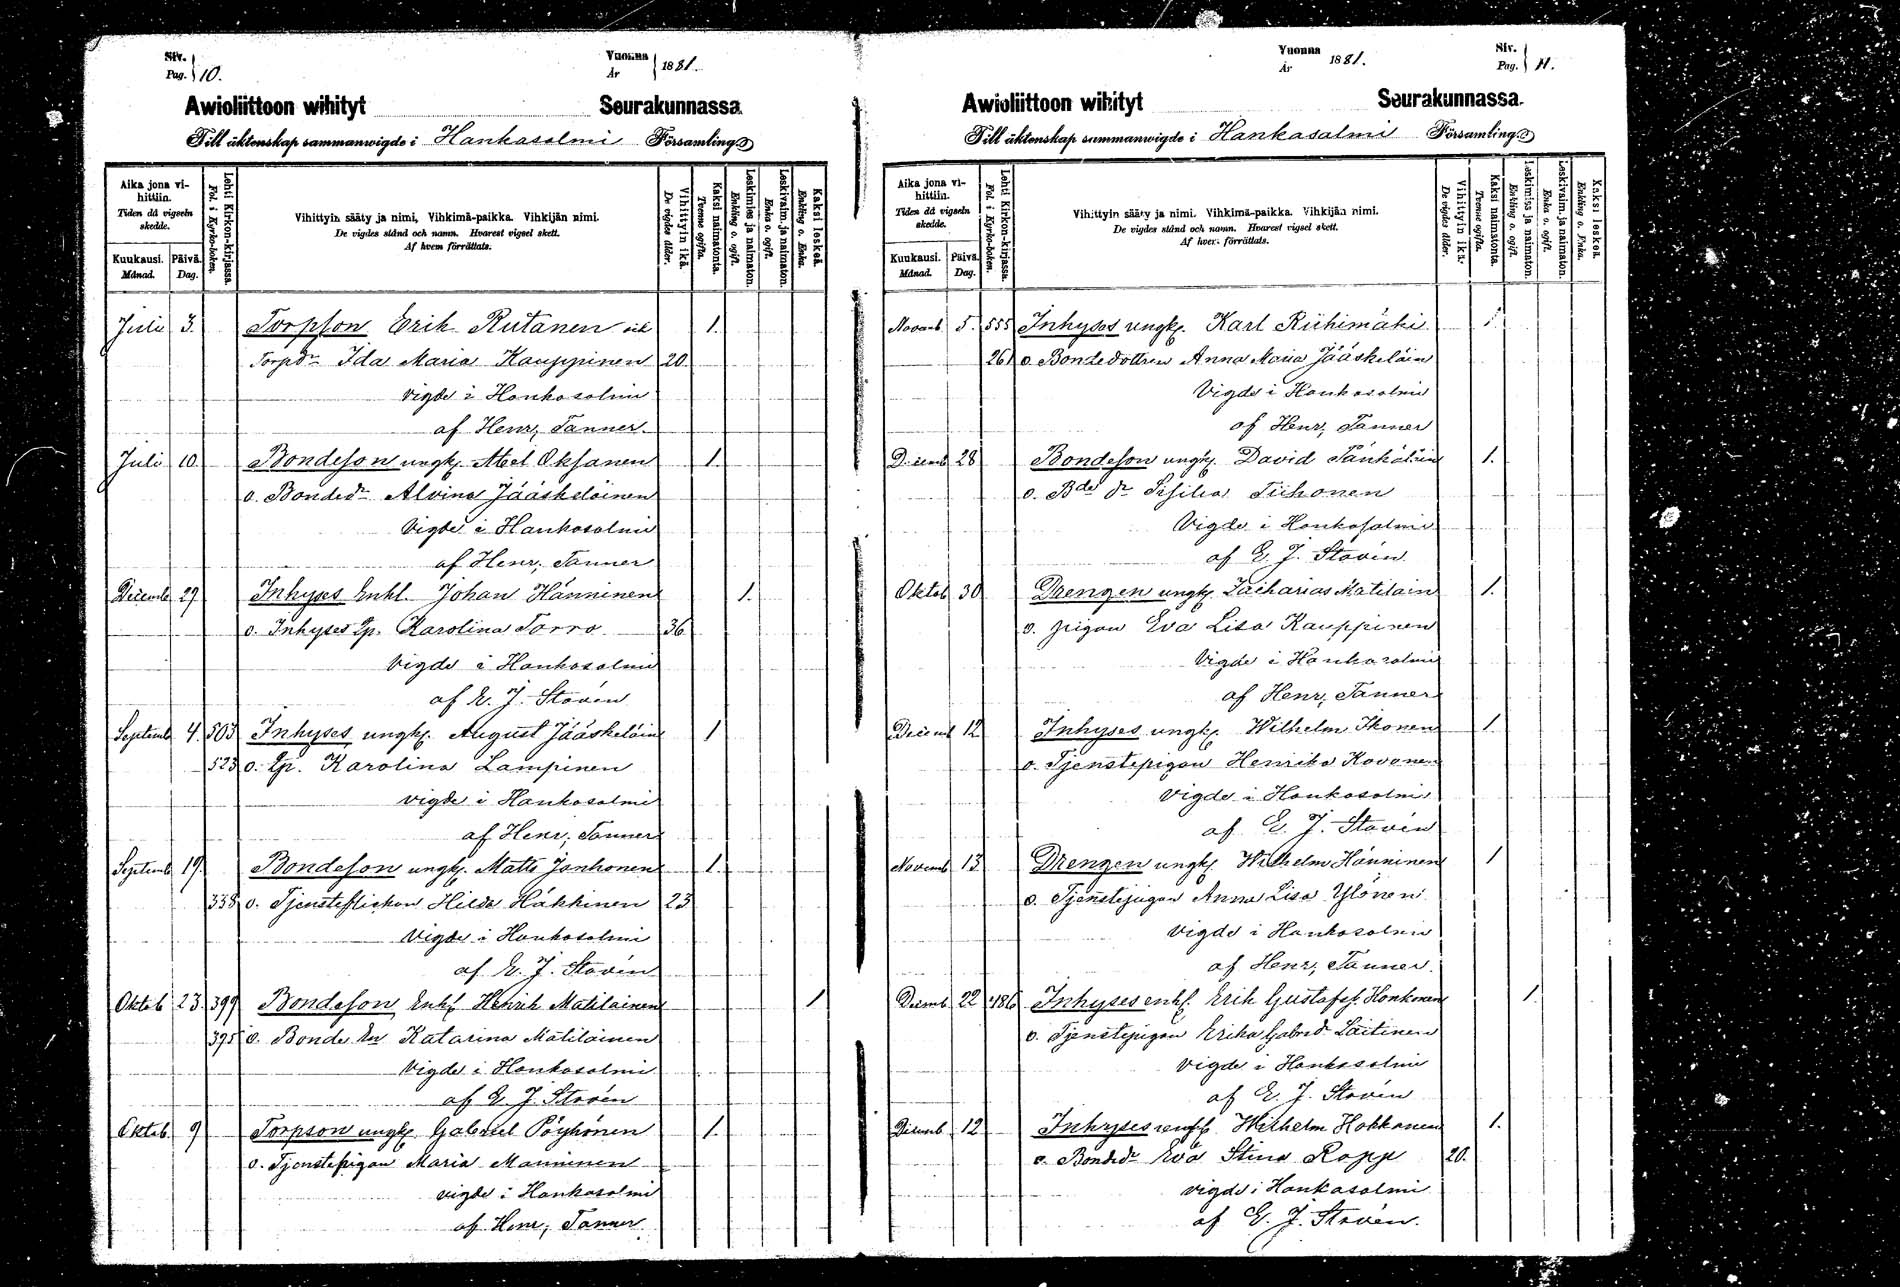 Siv.
Pag. 10.
Vuonna
År 1881.
Awioliittoon wihityt Seurakunnassa.
Till äktenskap sammanwigde i Hankasalmi Församling
Aika jona vihittiin.
Tiden då vigseln skedde.
Kuukausi. Månad.
Päivä. Dag.
Lehti Kirkon-kirjassa.
Fol. i Kyrko-boken.
Vihittyin sääty ja nimi, Vihkimä-paikka. Vihkijän nimi.
De vigdes stånd och namn. Hvarest vigsel skett.
Af hvem förrättats.
Vihittyin ikä.
De vigdes ålder.
Kaksi naimatonta.
Tvenne ogifta.
Leskimies ja naimaton.
Enkling o. ogift.
Leskivaim. ja naimaton.
Enka o. ogift.
Kaksi leskeä.
Enkling o. Enka.
Juli 3. Torpson Erik Rutanen och 1.
Torpdr Ida Maria Kauppinen 20
vigde i Hankasalmi
af Henr, Tanner.
Juli 10. Bondeson ungk. Abel Oksanen 1.
o. Bondedr Alvina Jääskeläinen
Vigde i Hankasalmi
af Henr, Tanner
Decemb 27 Inhyses Enkl. Johan Hänninen 1.
o. Inhyses Qp. Karolina Torro 36
Vigde i Hankasalmi
af E. J. Stovén
Septemb 4. 503 Inhyses ungk. August Jääskeläin 1
523 o. Qp. Karolina Lampinen
vigde i Hankasalmi
af Henr, Tanner
Septemb 19. Bondeson ungk. Matts Janhonen 1.
338 o. Tjensteflickan Hilda Häkkinen 23
Vigde i Hankasalmi
af E. J. Stovén
Oktob 23. 399 Bondeson Enkl Henrik Matilainen 1
395 o. Bonde En Katarina Matilainen
Vigde i Hankasalmi
af E. J. Stovén
Oktob 9 Torpson ungk Gabriel Pöyhönen 1.
o. Tjenstepigan Maria Manninen
vigde i Hankasalmi
af Henr, Tanner.
Vuonna
År 1881.
Siv.
Pag. 11.
Awioliittoon wihityt Seurakunnassa.
Till äktenskap sammanwigde i Hankasalmi Församling
Aika jona vihittiin.
Tiden då vigseln skedde.
Kuukausi. Månad.
Päivä. Dag.
Lehti Kirkon-kirjassa.
Fol. i Kyrko-boken.
Vihittyin sääty ja nimi. Vihkimä-paikka. Vihkijän nimi.
De vigdes stånd och namn. Hvarest vigsel skett.
Af hvem förrättats.
Vihittyin ikä.
De vigdes ålder.
Kaksi naimatonta.
Tvenne ogifta.
Leskimies ja naimaton.
Enkling o. ogift.
Leskivaim. ja naimaton.
Enka o. ogift.
Kaksi leskeä.
Enkling o. Enka.
Novemb 5. 555 Inhyses ungk. Karl Riihimäki 1.
261 o. Bondedottren Anna Maria Jääskeläin
Vigde i Hankasalmi
af Henr, Tanner
Decemb 28 Bondeson ungk. David Pänkäläin 1.
o. Bde dr Sisilia Tiihonen
Vigde i Hankasalmi
af E. J. Stovén
Oktob 30 Drengen ungk. Zacharias Matilain 1.
o. pigan Eva Lisa Kauppinen
Vigde i Hankasalmi
af Henr, Tanner
Decemb 12 Inhyses ungk. Wilhelm Ikonen 1.
o. Tjenstepigan Henrika Kovonen
vigde i Hankasalmi
af E. J. Stovén
Novemb 13 Drengen ungk. Wilhelm Hänninen 1
o. Tjenstepigan Anna Lisa Ylönen
vigde i Hankasalmi
af Henr, Tanner.
Decemb 22 486 Inhyses enkl. Erik Gustafsf. Honkonen 1.
o. Tjenstepigan Erika Gabrd Laitinen
vigde i Hankasalmi
af E. J. Stovén
Decemb 12 Inhyses Wilhelm Hokkanen 1.
o. Bondedr Eva Stina Ropp 20.
vigde i Hankasalmi
af E. J. Stovén.